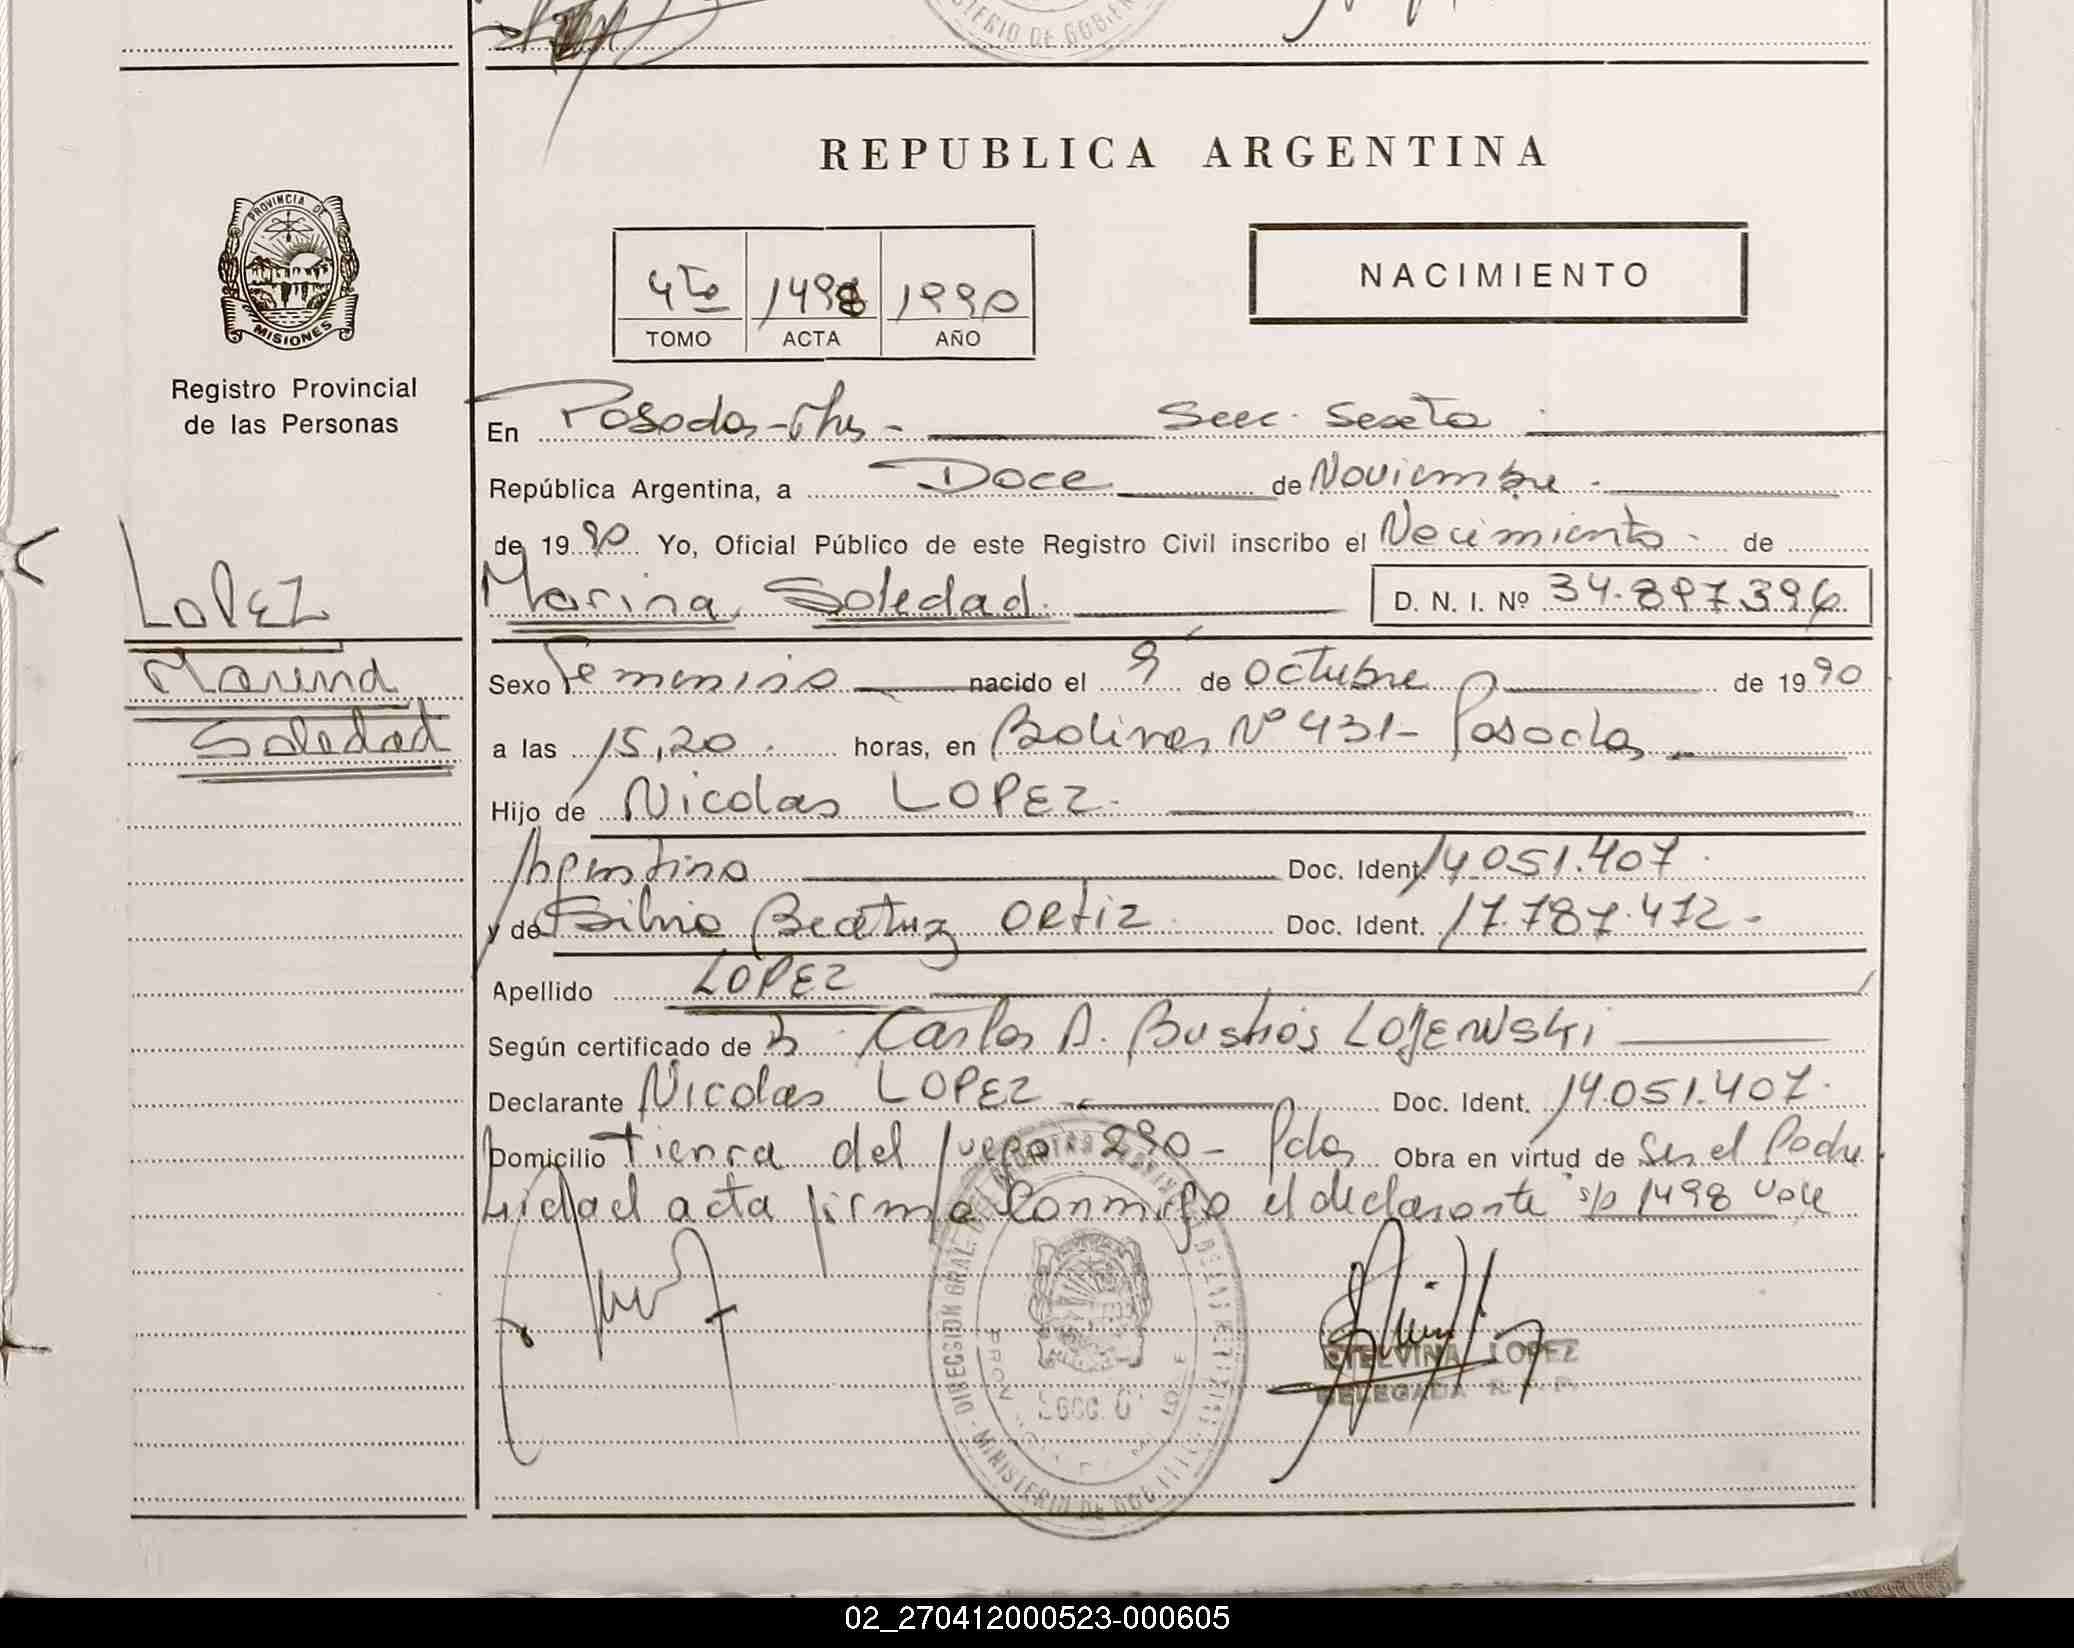 STERIO DE GOBIER
REPUBLICA ARGENTINA
PROVINCIA DE
MISIONES
Registro Provincial
de las Personas
4to 1498 1990
TOMO ACTA AÑO
NACIMIENTO
En Posadas-Mnes- Secc. Sexta
República Argentina, a Doce de Noviembre.
de 1990 Yo, Oficial Público de este Registro Civil inscribo el Nacimiento de
LOPEZ
Marina Soledad. D. N. I. Nº 34.897.396
Marina
Soledad
Sexo Femenino nacido el 9 de Octubre de 1990
a las 15,20. horas, en Bolivar Nº 431- Posadas
Hijo de Nicolas LOPEZ.
Argentino Doc. Ident. 14.051.407.
y de Silvia Beatriz ORTIZ Doc. Ident. 17.787.472-
Apellido LOPEZ
Según certificado de Carlos A. Bustos LOJEWSKI
Declarante Nicolas LOPEZ Doc. Ident. 14.051.407.
Domicilio Tierra del fuego 290- Pdas Obra en virtud de Ser el Padre
Leida el acta firma conmigo el declarante s/r 1498 Vale
DIRECCION GRAL. DEL REGISTRO PROVINCIAL DE LAS PERSONAS
MINISTERIO DE GOBIERNO
ETELVINA LOPEZ
DELEGADA R. P. P.
02_270412000523-000605